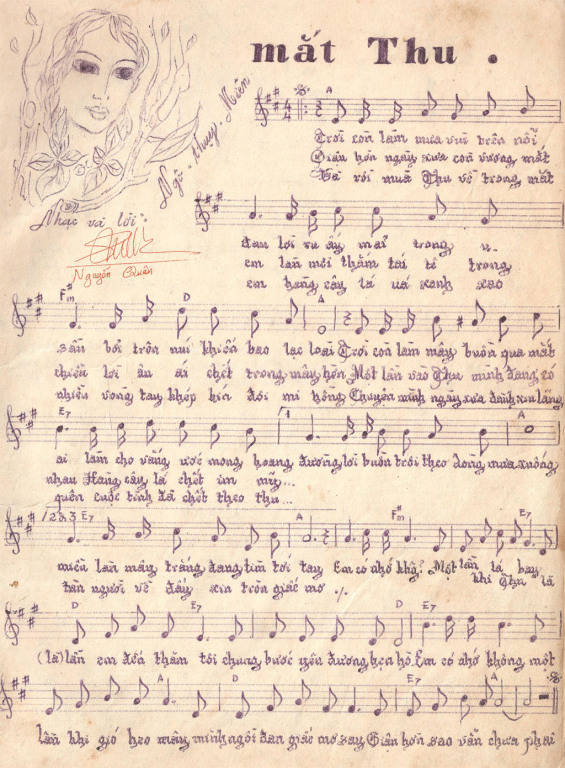 mắt Thu .
Ngô - thụy - Miên
Nhạc và lời :
Nguyễn Quân
A
Trời còn làm mưa rơi trên nỗi
Giận hờn ngày xưa còn vương mắt
Và rồi mùa Thu về trong mắt
đau lời ru ấy mãi trong u-
em làn môi thắm tái tê trong
em hàng cây lá úa xanh xao
F#m D A
sầu bởi trên núi khiến bao lạc loài Trời còn làm mây buồn qua mắt
thiếu lời ân ái chết trong mây hờn Một lần vào Thu mình đang có
nhiều vòng tay khép kín đôi mi hồng Chuyện mình ngày xưa đành xin lãng
E7 A
ai làm cho vàng ước mong hoang đường lời buồn trôi theo dòng mưa xuống
nhau Hàng cây lá chết im
quên cuộc tình đã chết theo thu...
1 2 & 3 E7 A F#m E7
miền làn mây trắng đang tìm tới tay Em có nhớ khg? Một lần lá bay
tần người về đây xin tròn giấc mơ ./. khi Thu là
D E7 A D E7
(là) lần em đến thăm tôi chung bước yêu đương hẹn hò. Em có nhớ không một
A D E7 A
lần khi gió heo mây mình ngồi đan giấc mơ say Giận hờn sao vẫn chưa phai